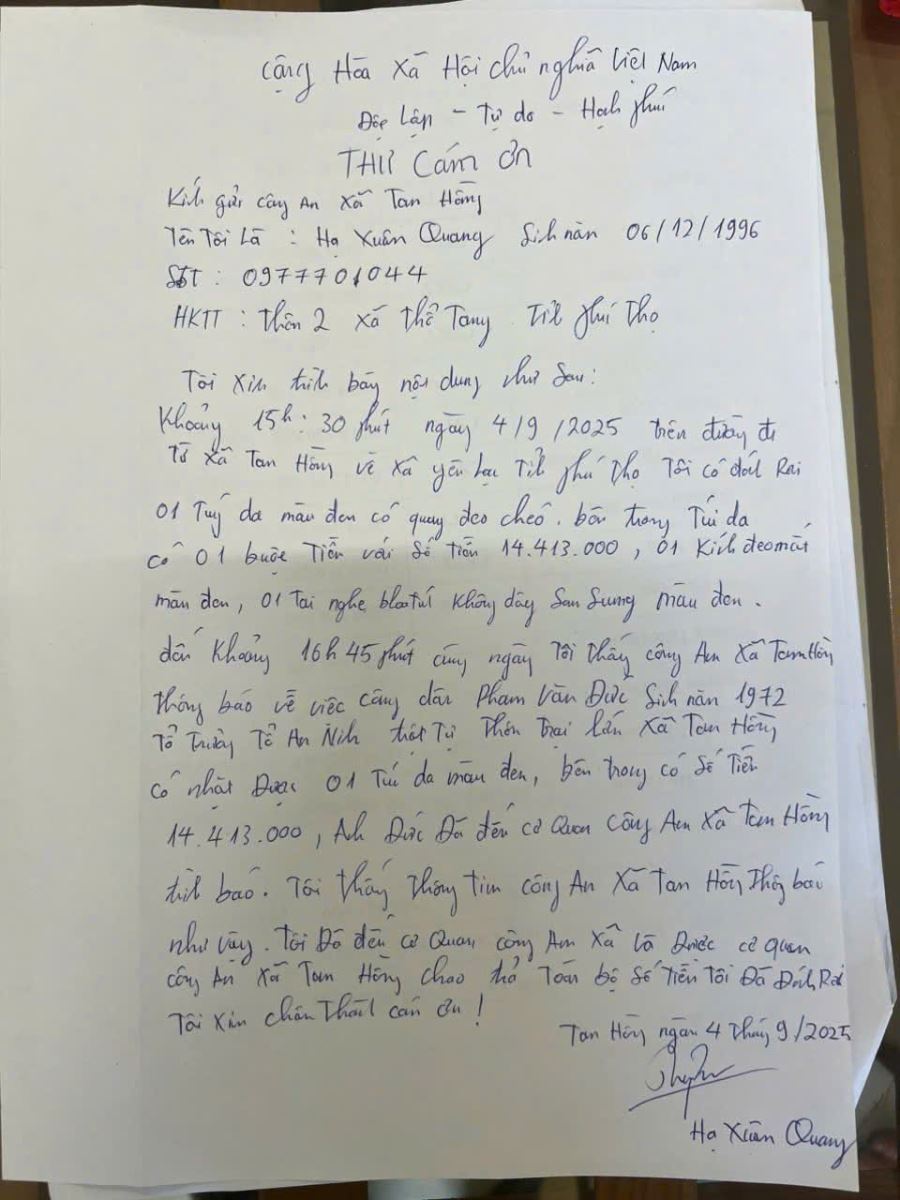 Cộng Hòa Xã Hội chủ nghĩa Việt Nam
Độc lập - Tự do - Hạnh phúc
THƯ Cảm ơn
Kính gửi công An xã Tam Hồng
Tên Tôi Là : Hạ Xuân Quang Sinh năm 06/12/1996
SĐT : 0977701044
HKTT : Thôn 2 xã Thổ Tang Tỉnh phú Thọ
Tôi Xin trình bày nội dung như Sau:
Khoảng 15h: 30 phút ngày 4/9/2025 trên đường đi
Từ xã Tam Hồng về xã yên Lạc Tỉnh phú Thọ Tôi có đánh Rơi
01 Túi da màu đen có quay đeo chéo. bên trong Túi da
có 01 buộc Tiền với số tiền 14.413.000, 01 Kính đeo mắt
màu đen, 01 Tai nghe không dây Sam Sung màu đen.
đến Khoảng 16h 45 phút cùng ngày Tôi thấy công An xã Tam Hồng
thông báo về việc công dân Phạm Văn Đức Sinh năm 1972
Tổ Trưởng Tổ An Ninh trật Tự Thôn Trại Lớn xã Tam Hồng
có nhặt Được 01 Túi da màu đen, bên trong có số Tiền
14.413.000, Anh Đức Đã đến cơ Quan Công An xã Tam Hồng
trình báo. Tôi thấy Thông tin công An xã Tam Hồng Thông báo
như vậy. Tôi Đã đến cơ Quan công An xã và Được cơ quan
công An xã Tam Hồng chao trả Toàn bộ số Tiền Tôi Đã Đánh Rơi
Tôi Xin chân Thành cảm ơn!
Tam Hồng ngày 4 tháng 9/2025
Hạ Xuân Quang